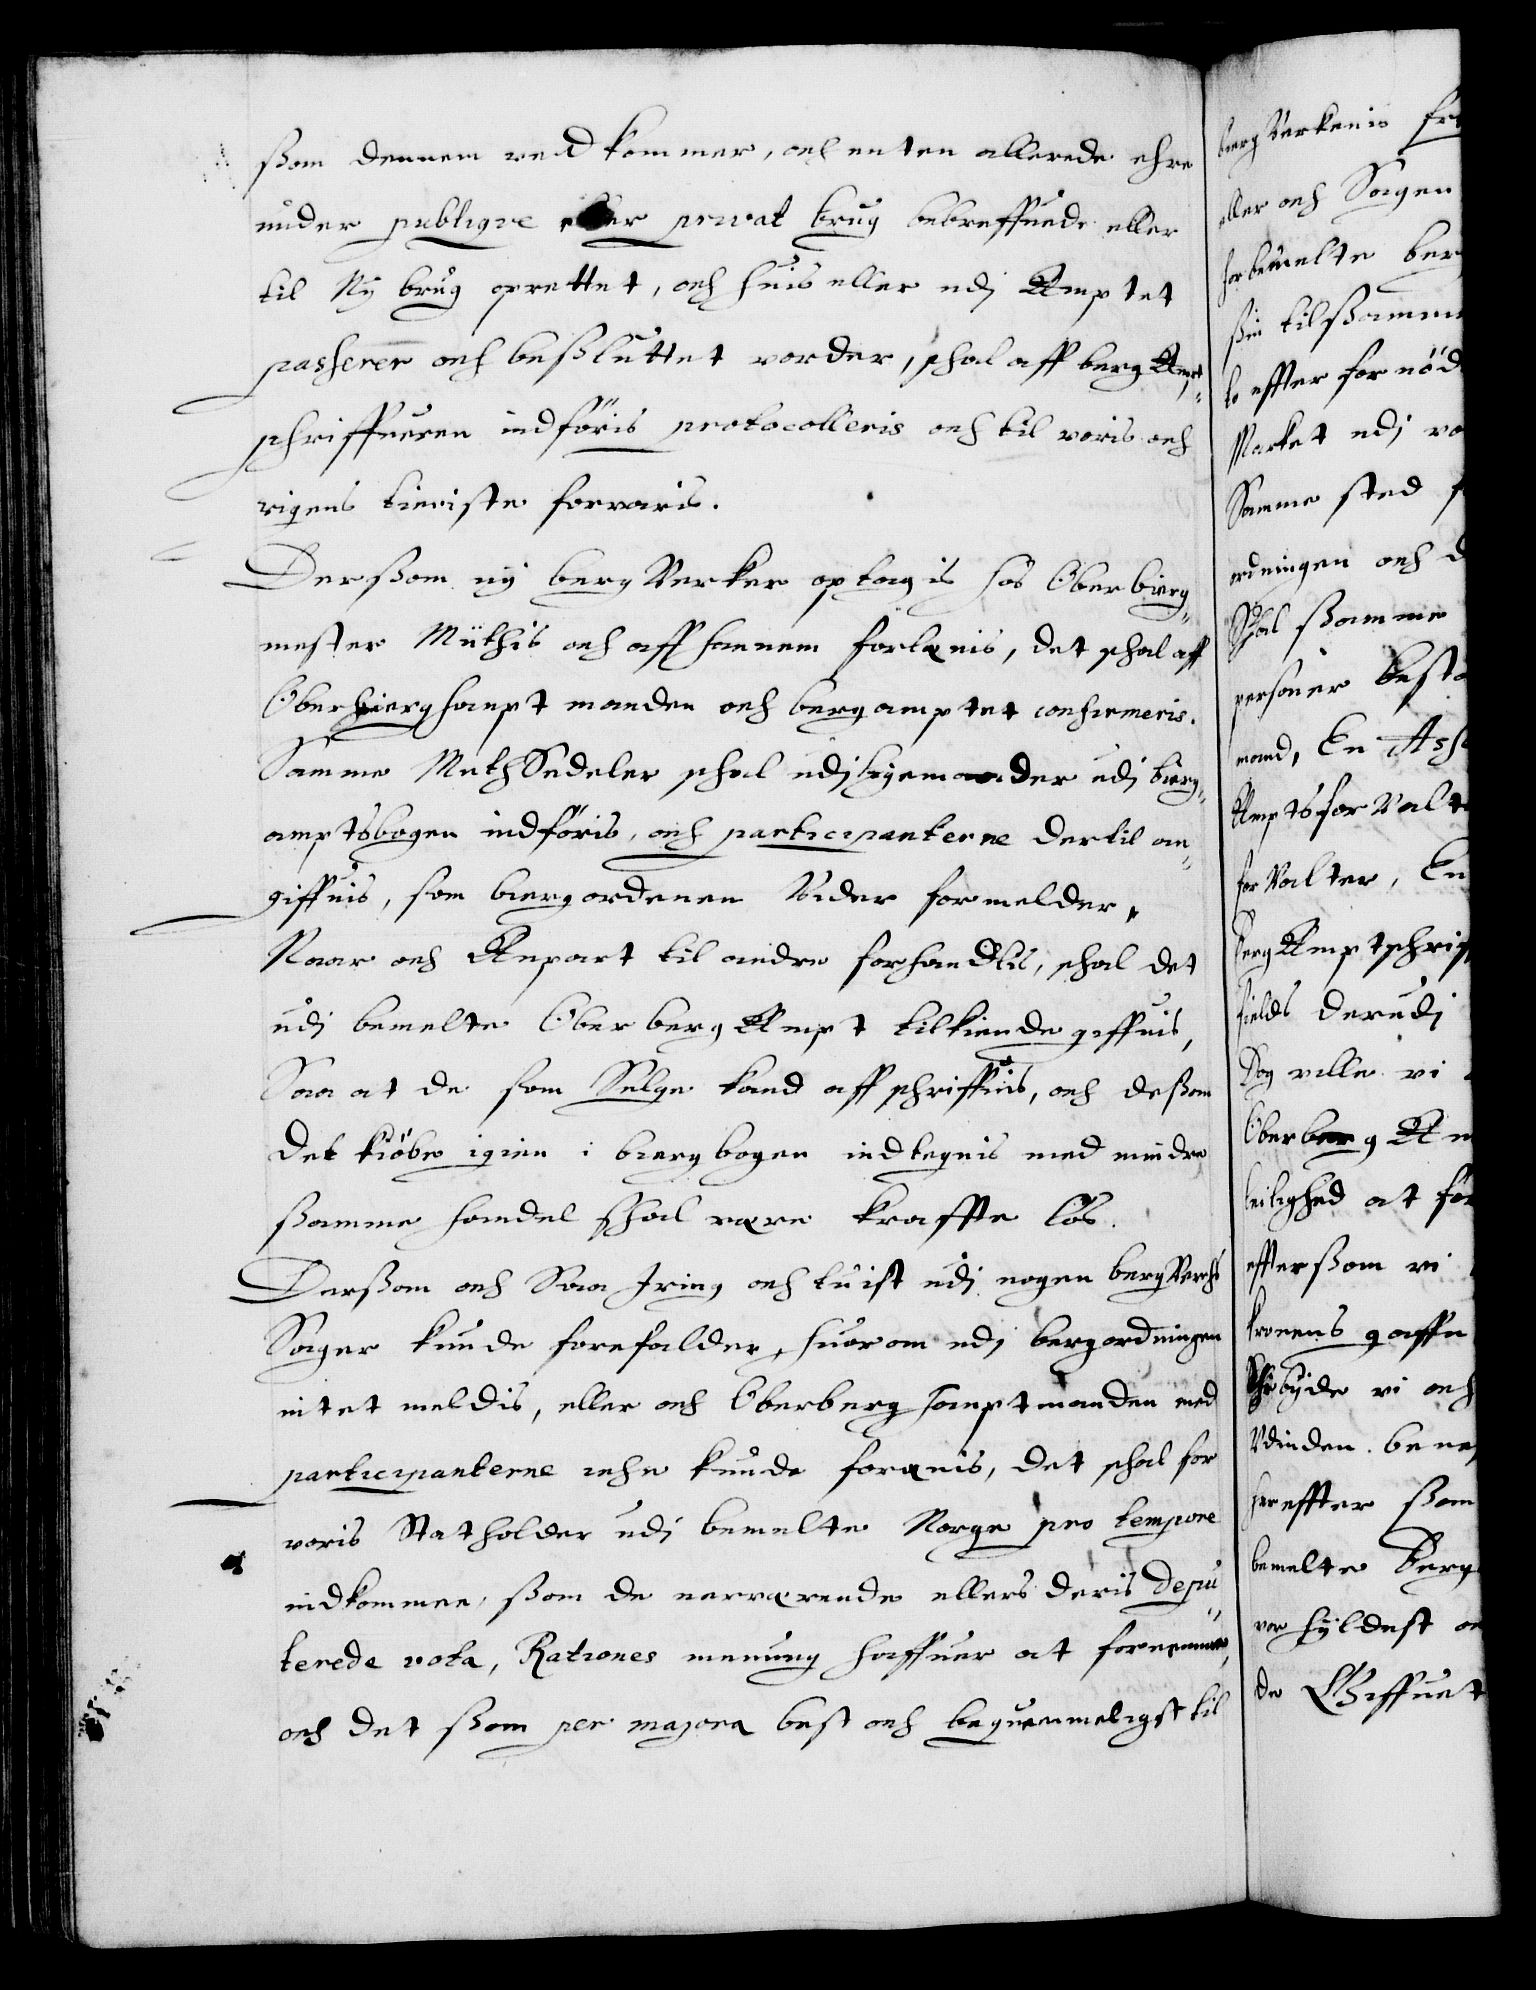 ßom dennem ved kommer, och enten allerede ehre
under publiqve eller privat brug bebreffuede eller
til Ny brug oprettet, och huis eller udj Amptet
passerer och beßluttet vorder, schal aff berg Ampt,,
schriffueren indföris protocolleris och til voris och
rigens tieniste forvaris.
Derßom ny berg Verker optagis hos Oberbierg,,
mester Müthis och aff hannem förlænis, det schal aff
Oberbierghaupt manden och bergamptet confirmeris.
Samme MuthSedeler schal udj ligemaader udj bierg,,
amptsbogen indföris, och participanterne dertil an,,
giffuis, som biergordenen Vider formelder,
Naar och Anpart til andre forhandlis, schal det
udj bemelte Ober berg Ampt tilkiende giffuis,
Saa at de som Selge kand aff schriffuis, och deßom
det kiöbe igien i biergbogen indtegnis med mindre
ßamme handel schal være krafftelös.
Derßom och Saa Iring och tuist udj nogen bergVerchs
Sager kunde forefalder, huorom udj bergordningen
intet meldis, eller och Oberberghauptmanden med
participanterne iche kunde forænis, det schal for
voris Statholder udj bemelte Norge pro tempore
indkomme, ßom de nerværende ellers deris depu,,
terede vota, Rationes menung haffuer at fornemme,
och det ßom per majora best och beqvemmeligst til
berg Verkenis
eller och Sagen
forbemelte
ßin tilßamm
effter for nöd
Market udj vo
Samme sted
ordningen och
Schal ßamme
personer besta
mand, En
Ampts forValt
forValter, En
berg Amptschrif
fields derudj
Dog ville vi
Oberberg Am
leilighed at for
effterßom vi
kronens gaffn
biude vi och
Vdinden
her effter ßom
bemelte Berg
vor hyldest
de Giffuet